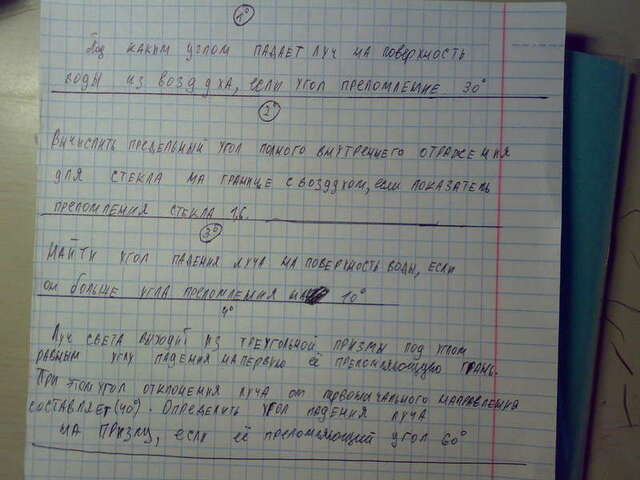 1°
Под каким углом падает луч на поверхность
воды из воздуха, если угол преломление 30°
2°
Вычислить предельный угол полного внутреннего отражения
для стекла на границе с воздухом, если показатель
преломления стекла 1,6.
3°
Найти угол падения луча на поверхность воды, если
он больше угла преломления на 10°
4°
Луч света выходит из треугольной призмы под углом
равным углу падения на первую её преломляющую грань.
При этом угол отклонения луча от первоначального направления
составляет (40°). Определить угол падения луча
на призму, если её преломляющий угол 60°